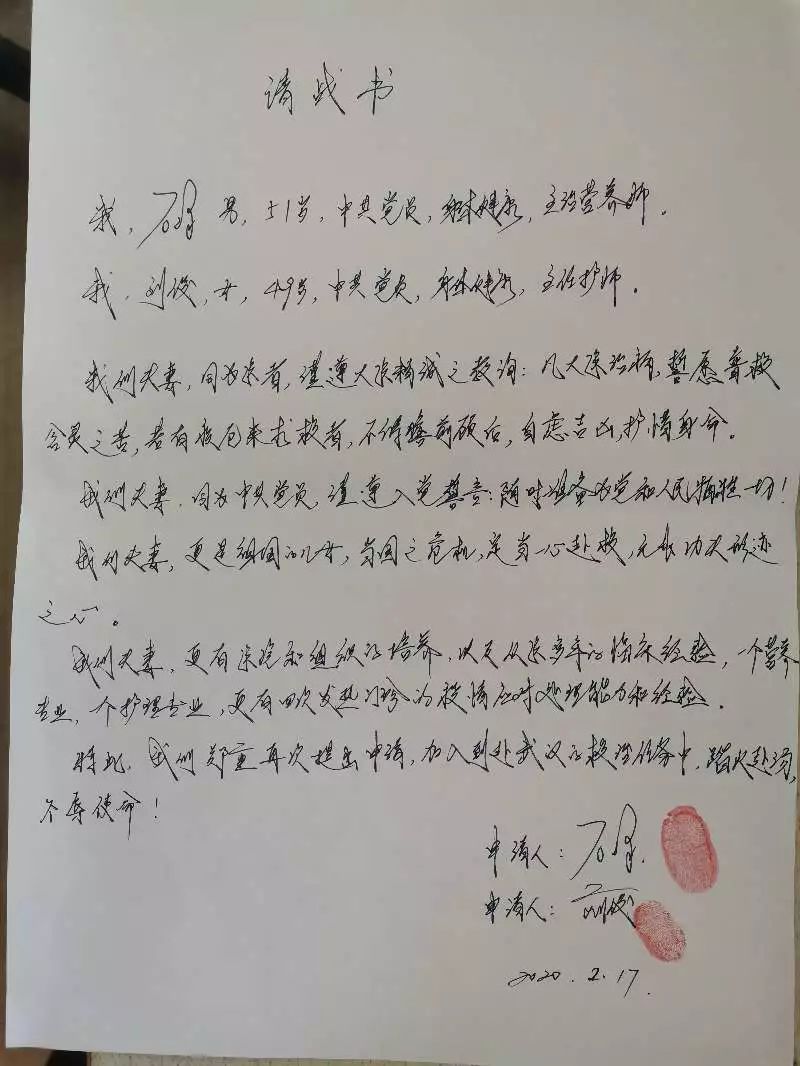 请战书
我，石 男，51岁，中共党员，身体健康，主治营养师。
我，刘俊，女，49岁，中共党员，身体健康，主任护师。
我们夫妻，同为医者，谨遵大医精诚之教诲：凡大医治病，誓愿普救
含灵之苦，若有疾厄来求救者，不得瞻前顾后，自虑吉凶，护惜身命。
我们夫妻，同为中共党员，谨遵入党誓言：随时准备为党和人民牺牲一切！
我们夫妻，更是祖国的儿女，当国之危机，定当一心赴救，无作功夫形迹
之心。
我们夫妻，更有医院和组织的培养，以及从医多年的临床经验，一个营养
专业，一个护理专业，更有四次发热门诊 疫情应对处理能力和经验。
特此，我们郑重再次提出申请，加入到赴武汉的救治任务中，蹈火赴汤，
不辱使命！
申请人：石
申请人：刘俊
2020.2.17.